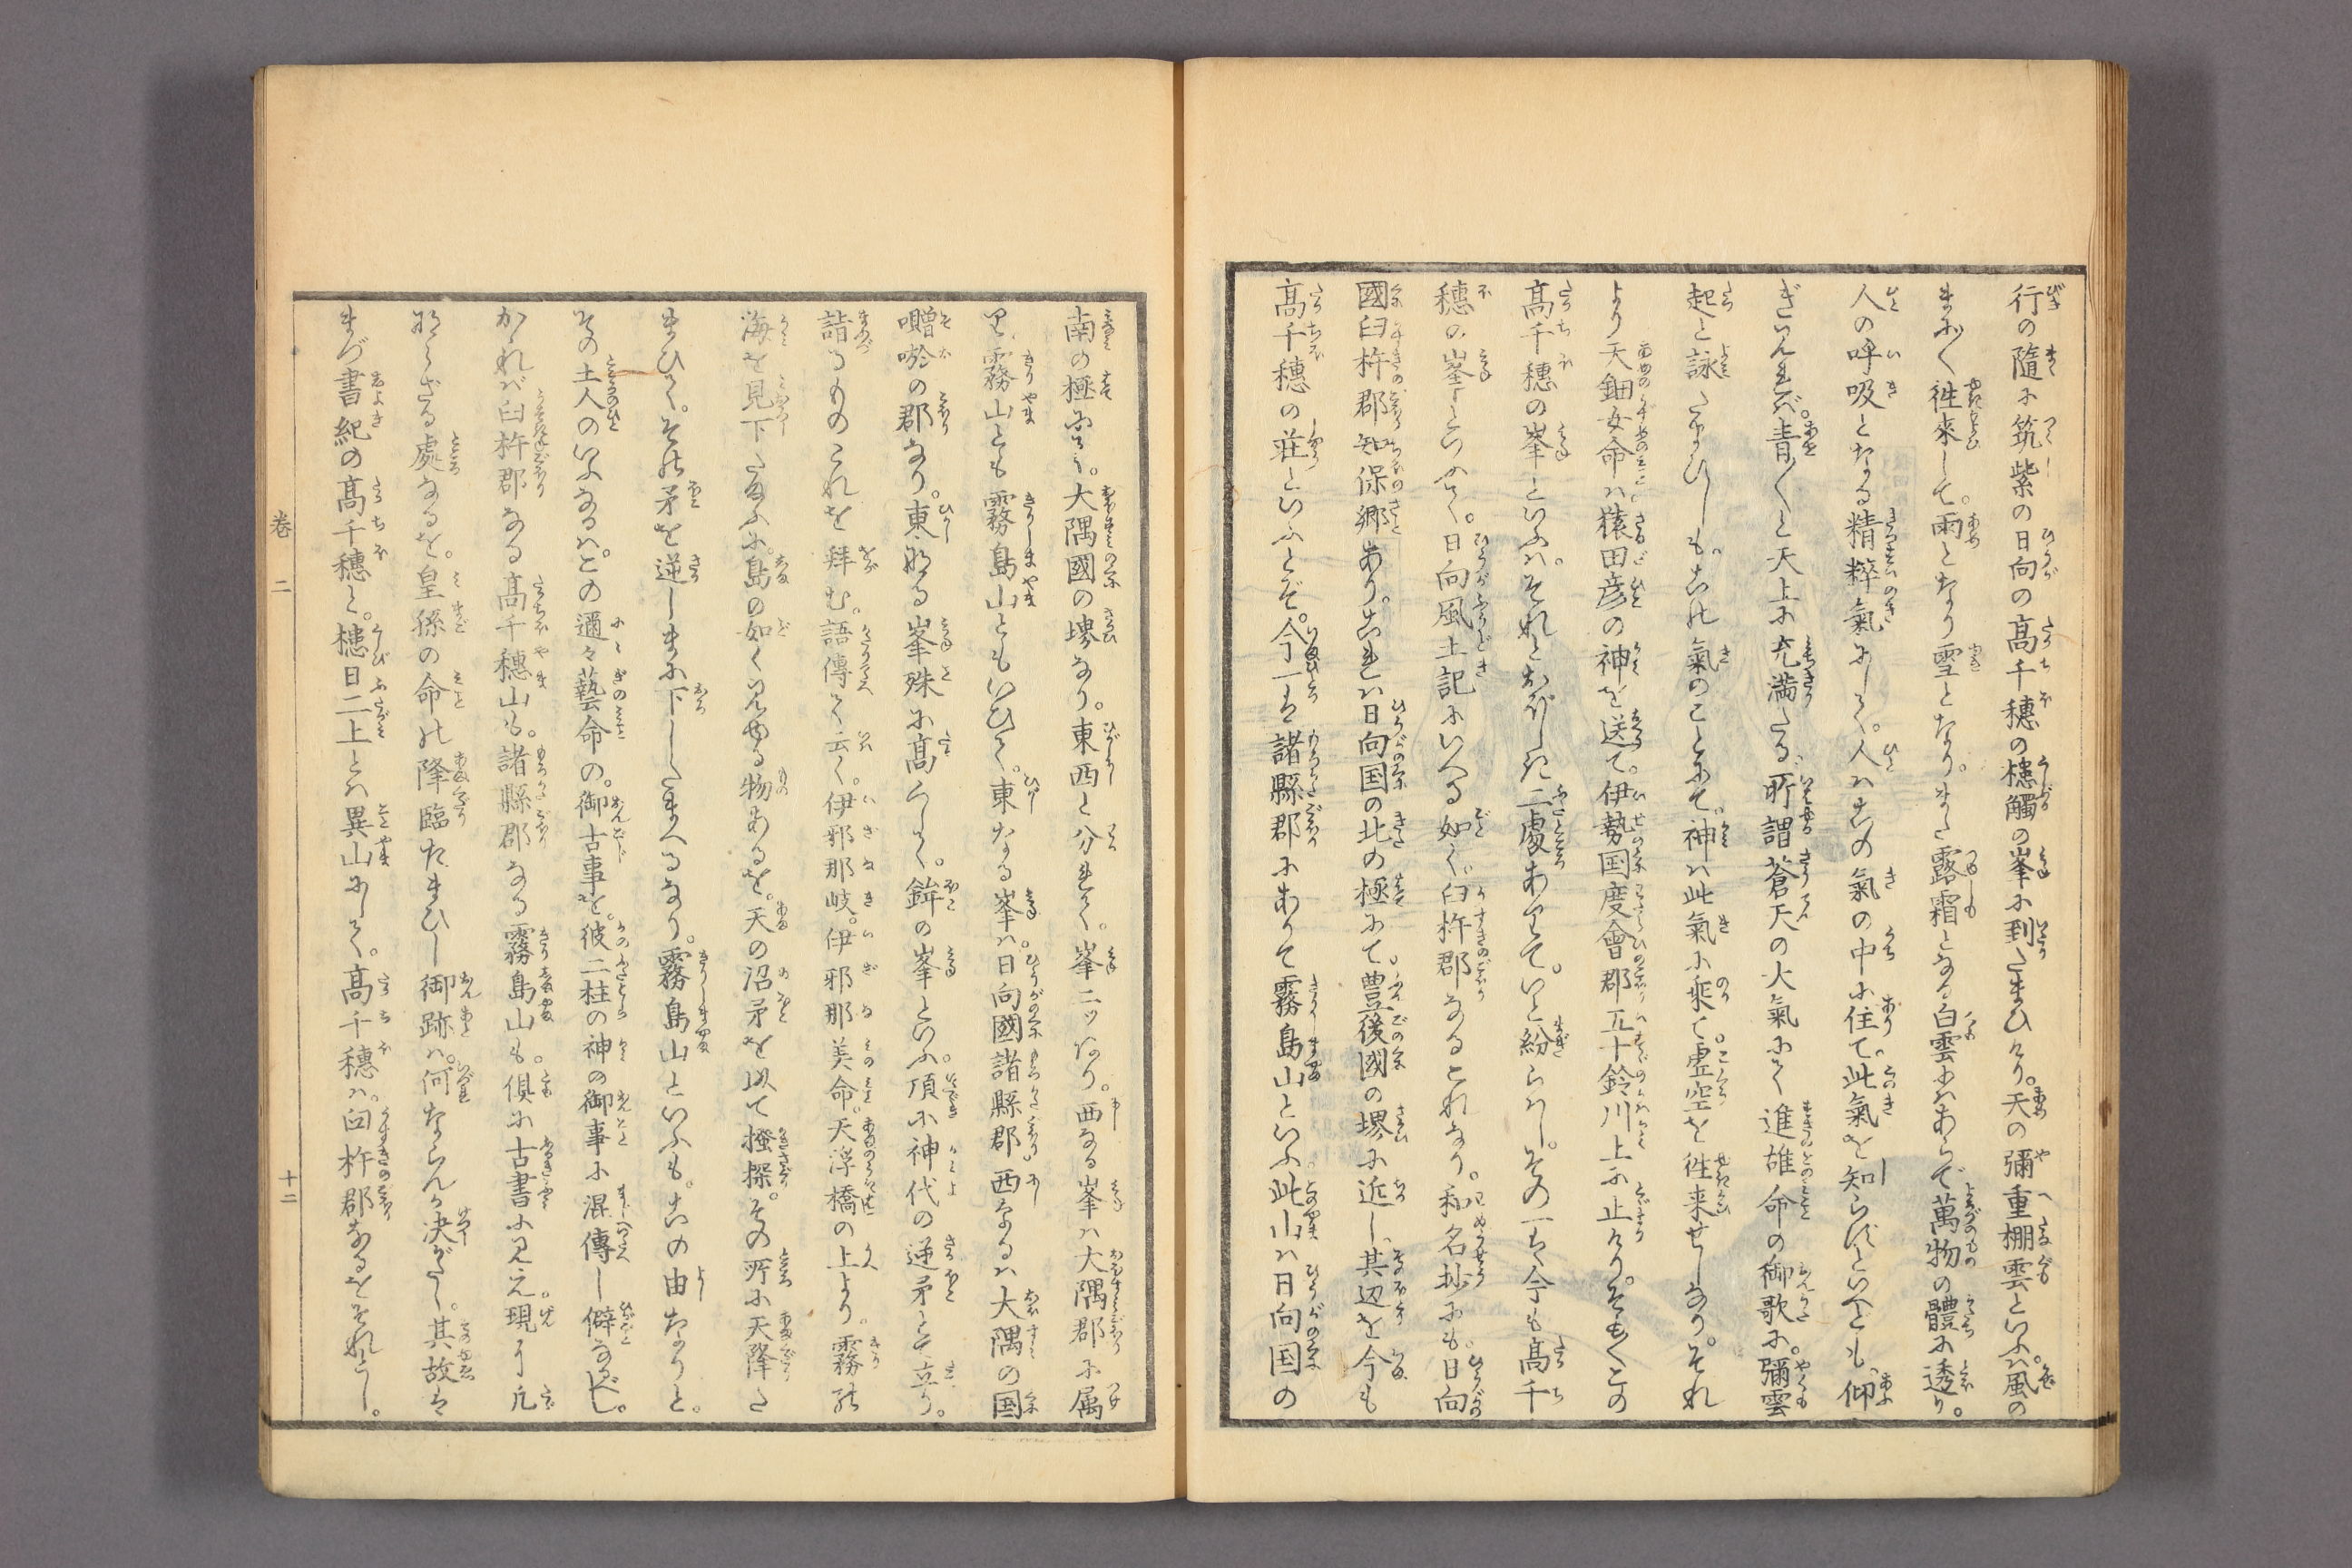 行の隨に筑紫の日向の髙千穗の槵觸の峯に到たまひけり。天の彌重棚雲といふハ。風の
まに〳〵徃來して。雨となり雪となり。また露霜となる白雲にハあらで萬物の體に透り。
人の呼吸となる精粹氣にして。人ハこの氣の中に住て。此氣を知らずといへども。仰
ぎいんまが。青〳〵と天上に充満たる。所謂蒼天の大氣にて進雄命の御歌に。彌雲
起と詠たまひしも。この氣のことにて。神ハ此氣に乗て。虚空を徃来せしなり。それ
より天鈿女命ハ猿田彦の神を送て。伊勢国度會郡五十鈴川上に止けり。そも〳〵この
髙千穗の峯といふハ。それとおぼしき二處ありて。いと紛らハし。その一ハ今も髙千
穗の峯といひて。日向風土記にいへる如く。臼杵郡なるこれなり。和名抄にも。日向
國臼杵郡知保郷あり。これハ日向国の北の極にて。豊後國の堺に近し。其辺を今も
髙千穗の荘といふとぞ。今一ハ諸縣郡にありて霧島山といふ。此山ハ日向国の
南の極にて。大隅國の堺なり。東西と分れて。峯二ツあり。西なる峯ハ大隅郡に属
り。霧山とも霧島山ともいひて。東なる峯ハ。日向國諸縣郡西なるハ大隅の国
囎唹の郡なり。東なる峯殊に髙くして。鉾の峯といふ。頂に神代の逆矛とて立り。
詣るものこれを拜む。語傳て云く。伊邪那岐。伊邪那美命。天浮橋の上より。霧の
海を見下たまふに。島の如く見ゆる物あるを。天の沼矛を以て搔探。その所に天降た
まひて。その矛を逆しまに下したまへるなり。霧島山といふも。この由なりと。
その土人のいふなるハ。この邇々藝命の。御古事を。彼二柱の神の御事に混傳し僻なるべし。
かゝれバ臼杵郡なる髙千穗山も。諸縣郡なる霧島山も。倶に古書に見え。現に凡
ならざる處なるを。皇孫の命の降臨たまひし御跡ハ。何ならんか决がたし。其故ハ
まづ書紀の髙千穗と。槵日二上とハ異山にして。髙千穗ハ。臼杵郡なるをそれとし。
卷 二
十二